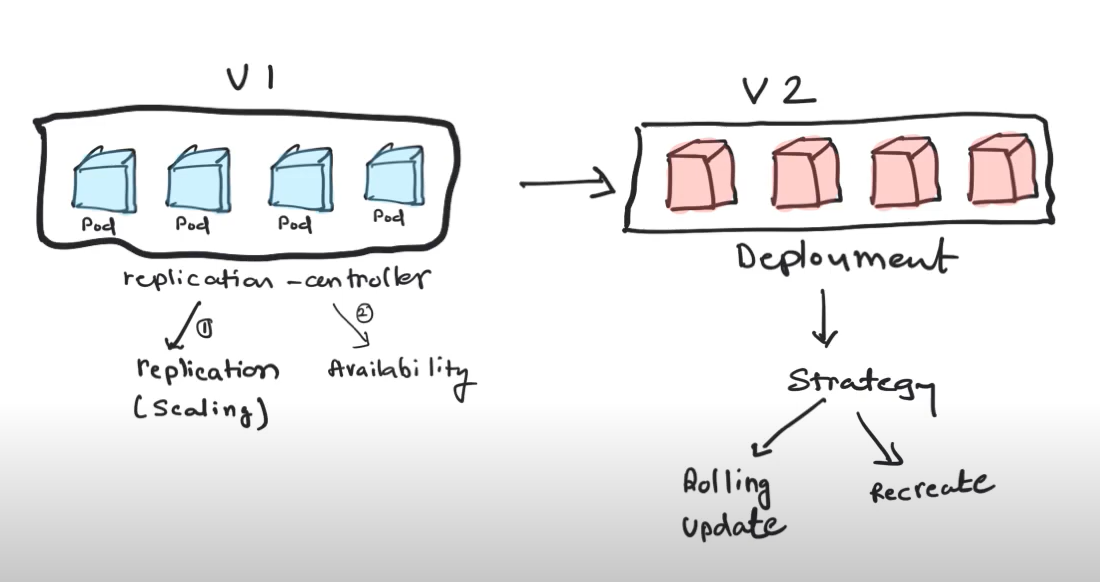 V 1
Pod
Pod
Pod
Pod
replication - controller
①
②
replication
(Scaling)
Availability
V 2
Deployment
Strategy
Rolling
Update
Recreate